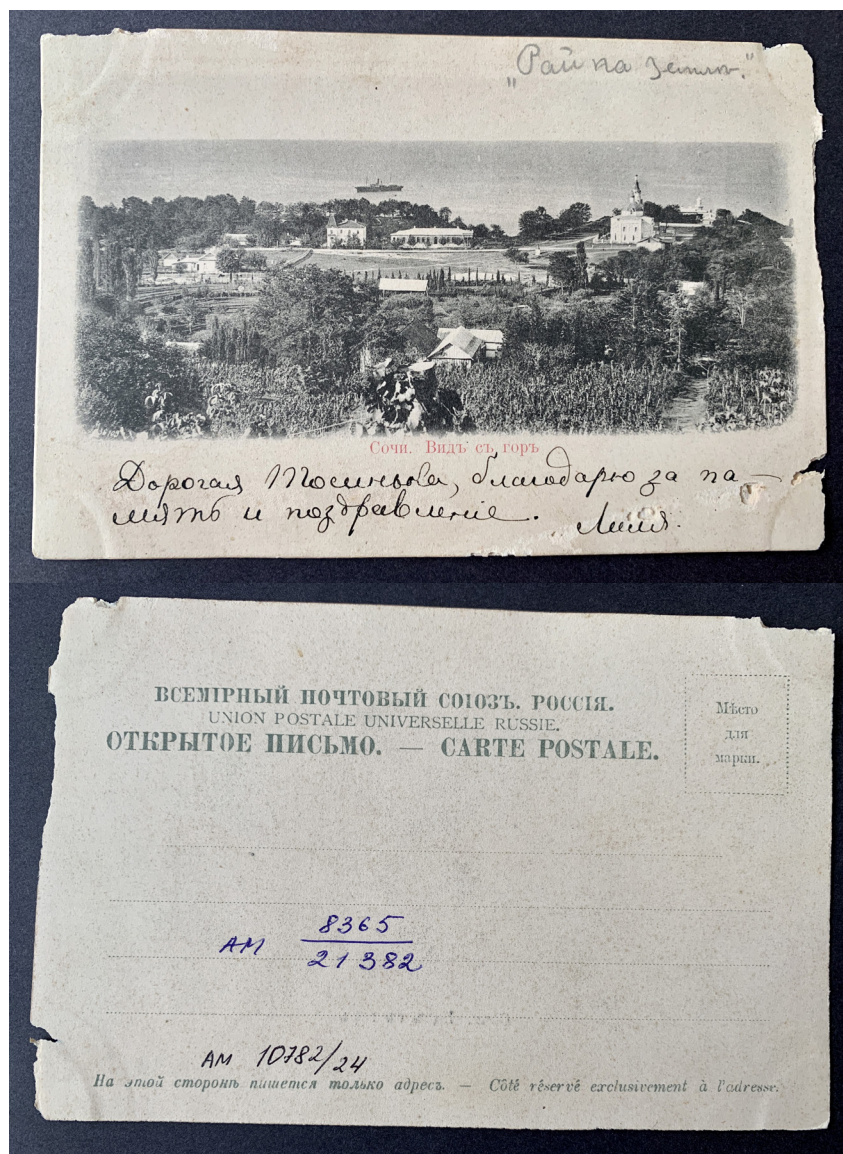 „Рай на землѣ."
Сочи. Видъ съ горъ
Дорогая Тосинька, благодарю за па-
мять и поздравленіе. Лиля.
ВСЕМІРНЫЙ ПОЧТОВЫЙ СОЮЗЪ. РОССІЯ.
UNION POSTALE UNIVERSELLE RUSSIE.
ОТКРЫТОЕ ПИСЬМО. — CARTE POSTALE.
Мѣсто
для
марки.
8365
АМ
21382
АМ 10782/24
На этой сторонѣ пишется только адресъ. — Côté réservé exclusivement à l'adresse.